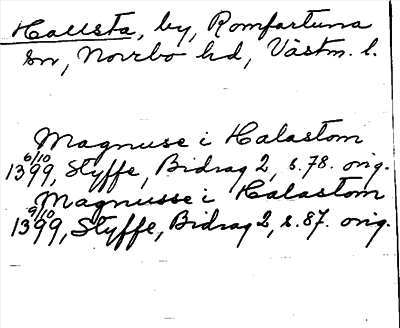 Hallsta, by, Romfartuna
sn, Norrbo hd, Västm. l.
Magnuse i Halastom
6/10 1399, Styffe, Bidrag 2, s. 78. orig.
Magnusse i Halastom
9/10 1399, Styffe, Bidrag 2, s. 87. orig.